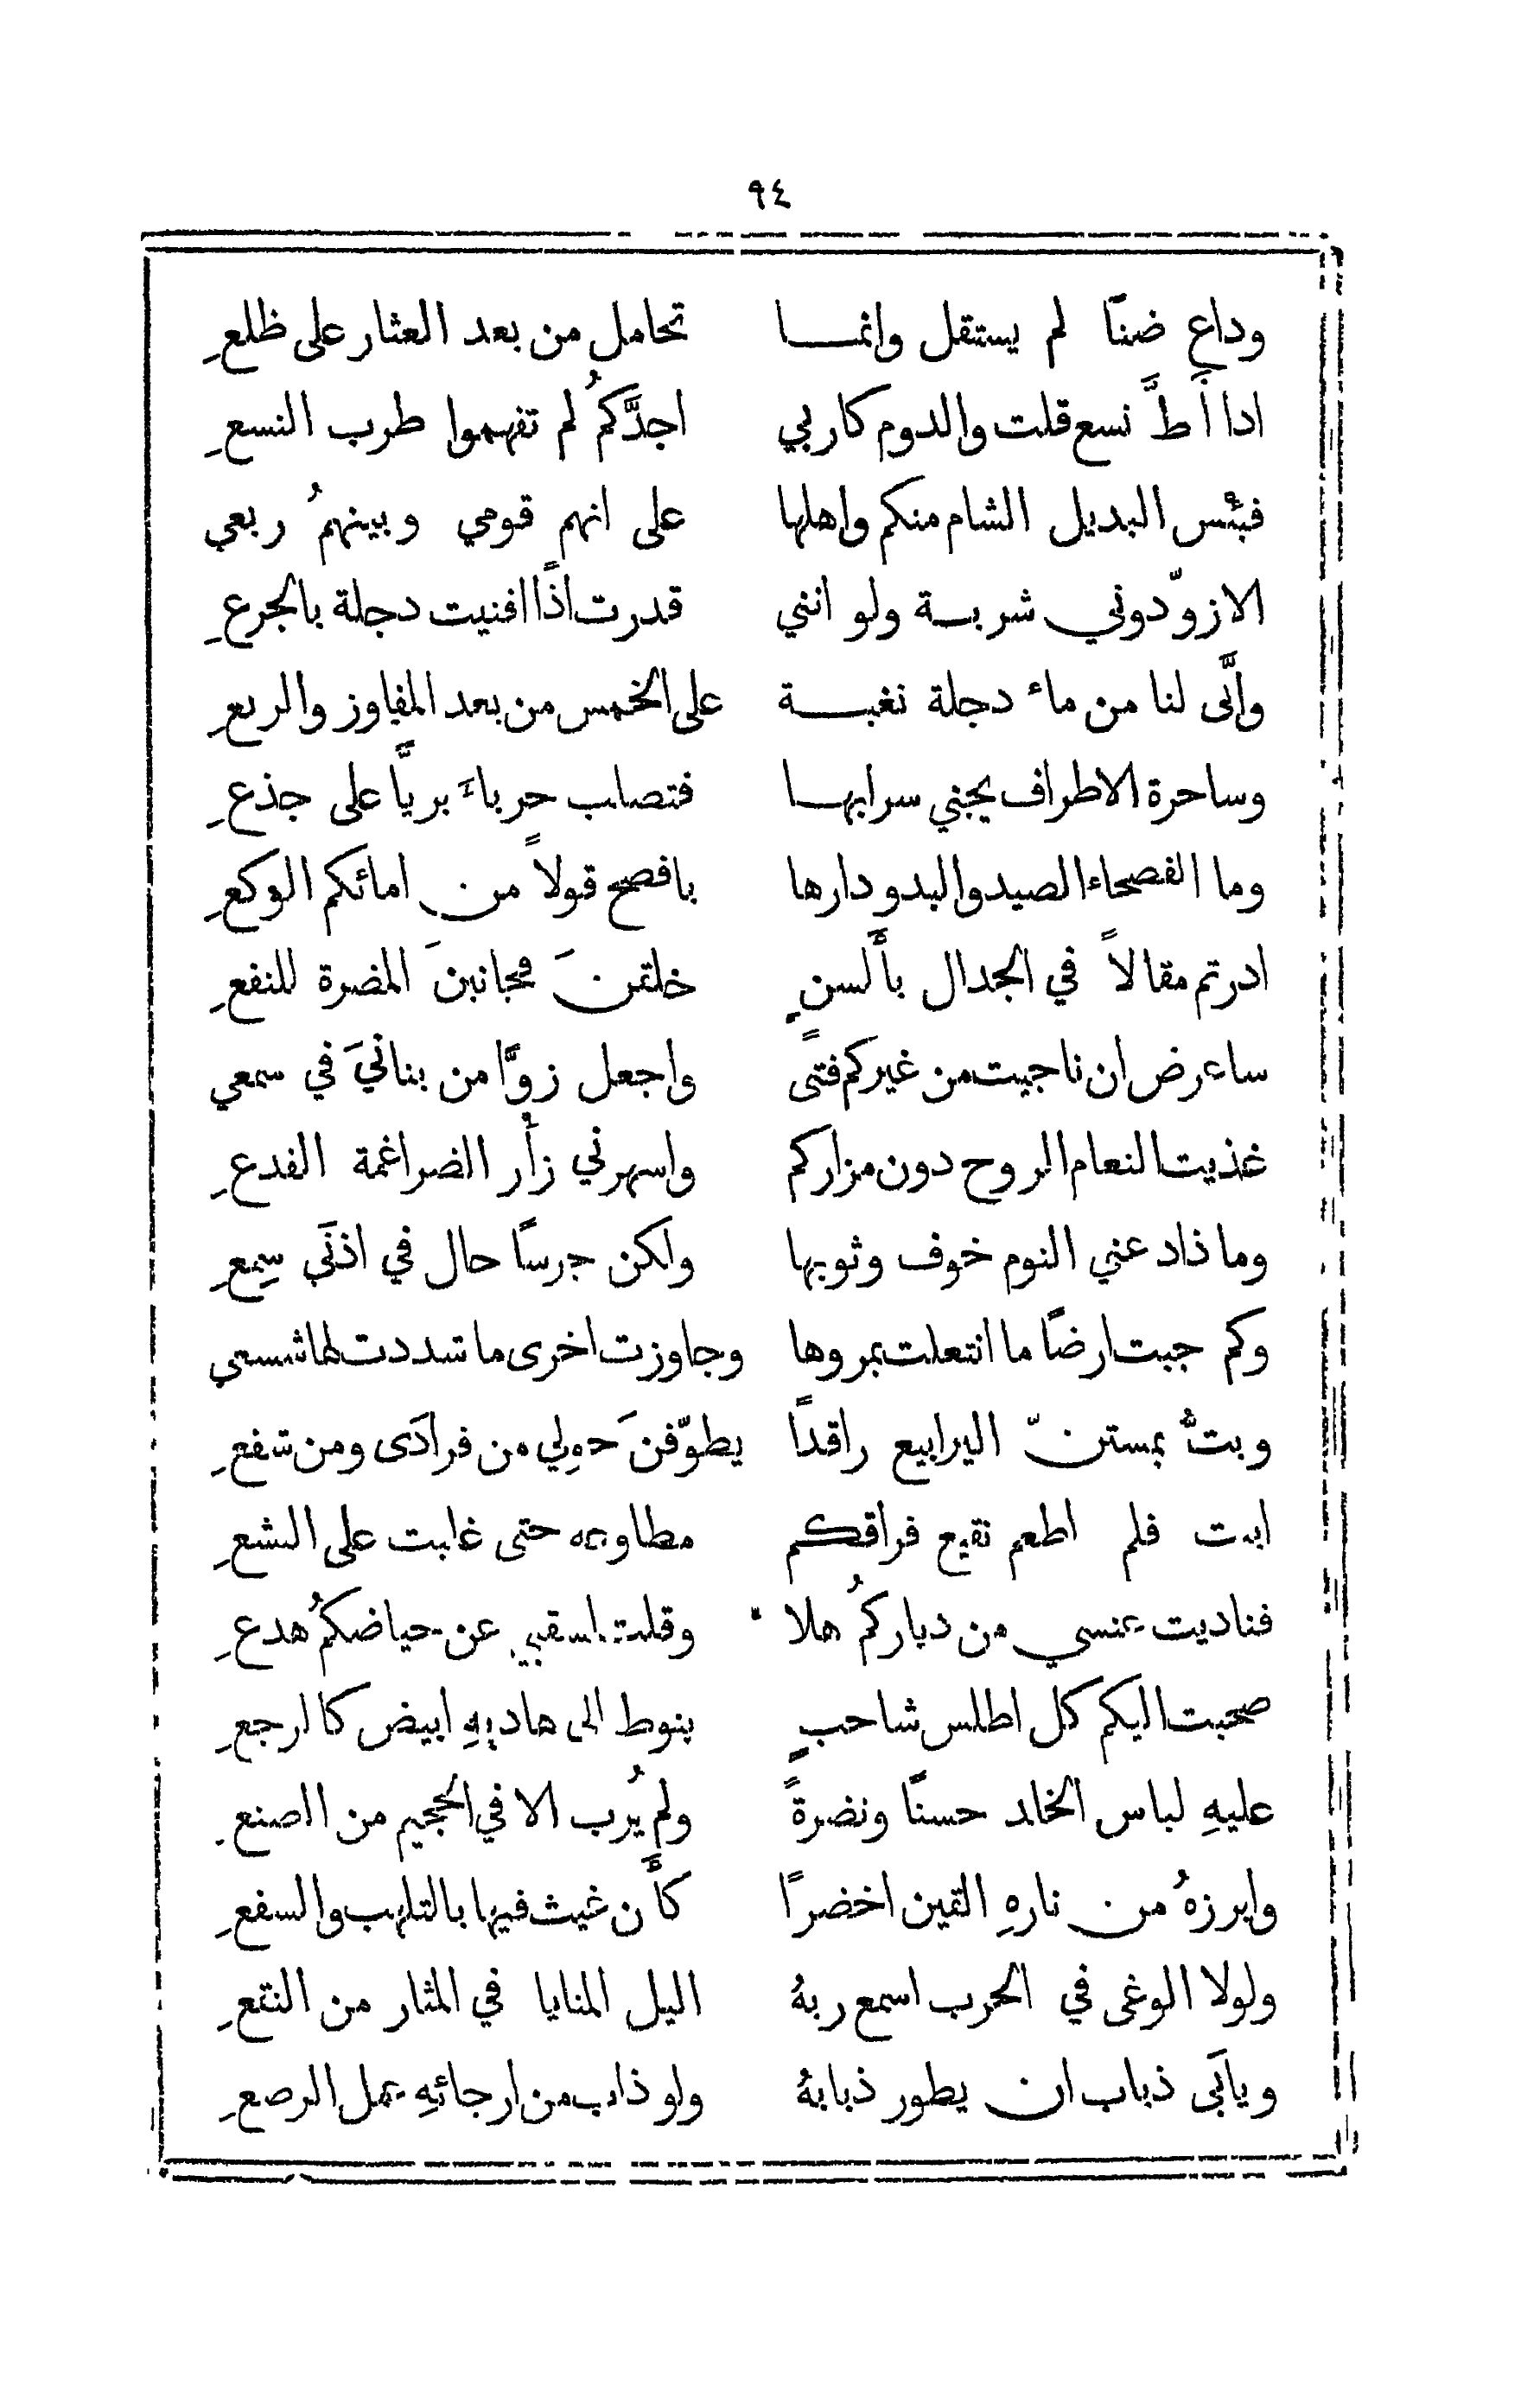 ٩٤
وداعِ ضنًا لم يستقل وانمـــا تحامل من بعد العثار على ظلعِ
اذا أَطَّ نسع قلت والدوم كاربي اجدَّكمُ لم تفهموا طرب النسعِ
فبئس البديل الشام منكم واهلها على انهم قومي وبينهمُ ربعي
الا زوّدوني شربــة ولو انني قدرت اذًا افنيت دجلة بالجرعِ
وأَنَّى لنا من ماء دجلة نغبـــة على الخمس من بعد المفاوز والربعِ
وساحرة الاطراف يجني سرابهـــا فتصلب حرباءً بريًّا على جذعِ
وما الفصحاء الصيد والبدو دارها بافصح قولاً من امائكم الوكعِ
ادرتم مقالاً في الجدال بأَلسنٍ خلقنَ مجانبنَ المضرة للنفعِ
ساعرض ان ناجيت من غيركم فتًى واجعل زوًّا من بنانيَ في سمعي
غذيت النعام الروح دون مزاركم واسهرني زأْر الضراغمة الفدعِ
وما ذاد عني النوم خوف وثوبها ولكن جرسًا حال في اذنَي سِمعِ
وكم جبت ارضًا ما انتعلت بمروها وجاوزت اخرى ما شددت لها شسعي
وبتُّ بمستنّ اليرابيع راقدًا يطوّفنَ حولي من فرادَى ومن شفعِ
ابيت فلم اطعم نقيع فراقكم مطاوعه حتى غلبت على النشعِ
فناديت عنسي من دياركمُ هلا وقلت لسقبي عن حياضكمُ هدعِ
صحبت اليكم كل اطلس شاحبٍ ينوط الى هاديهِ ابيض كالرجعِ
عليهِ لباس الخلد حسنًا ونضرةً ولم يُرب الا في الجحيم من الصنعِ
وابرزهُ من نارهِ القين اخضرًا كأَن غيث فيها بالتلهب والسفعِ
ولولا الوغى في الحرب اسمع ربهُ اليل المنايا في المثار من النقعِ
ويابَى ذباب ان يطور ذبابهُ ولو ذاب من ارجائهِ عمل الرصعِ